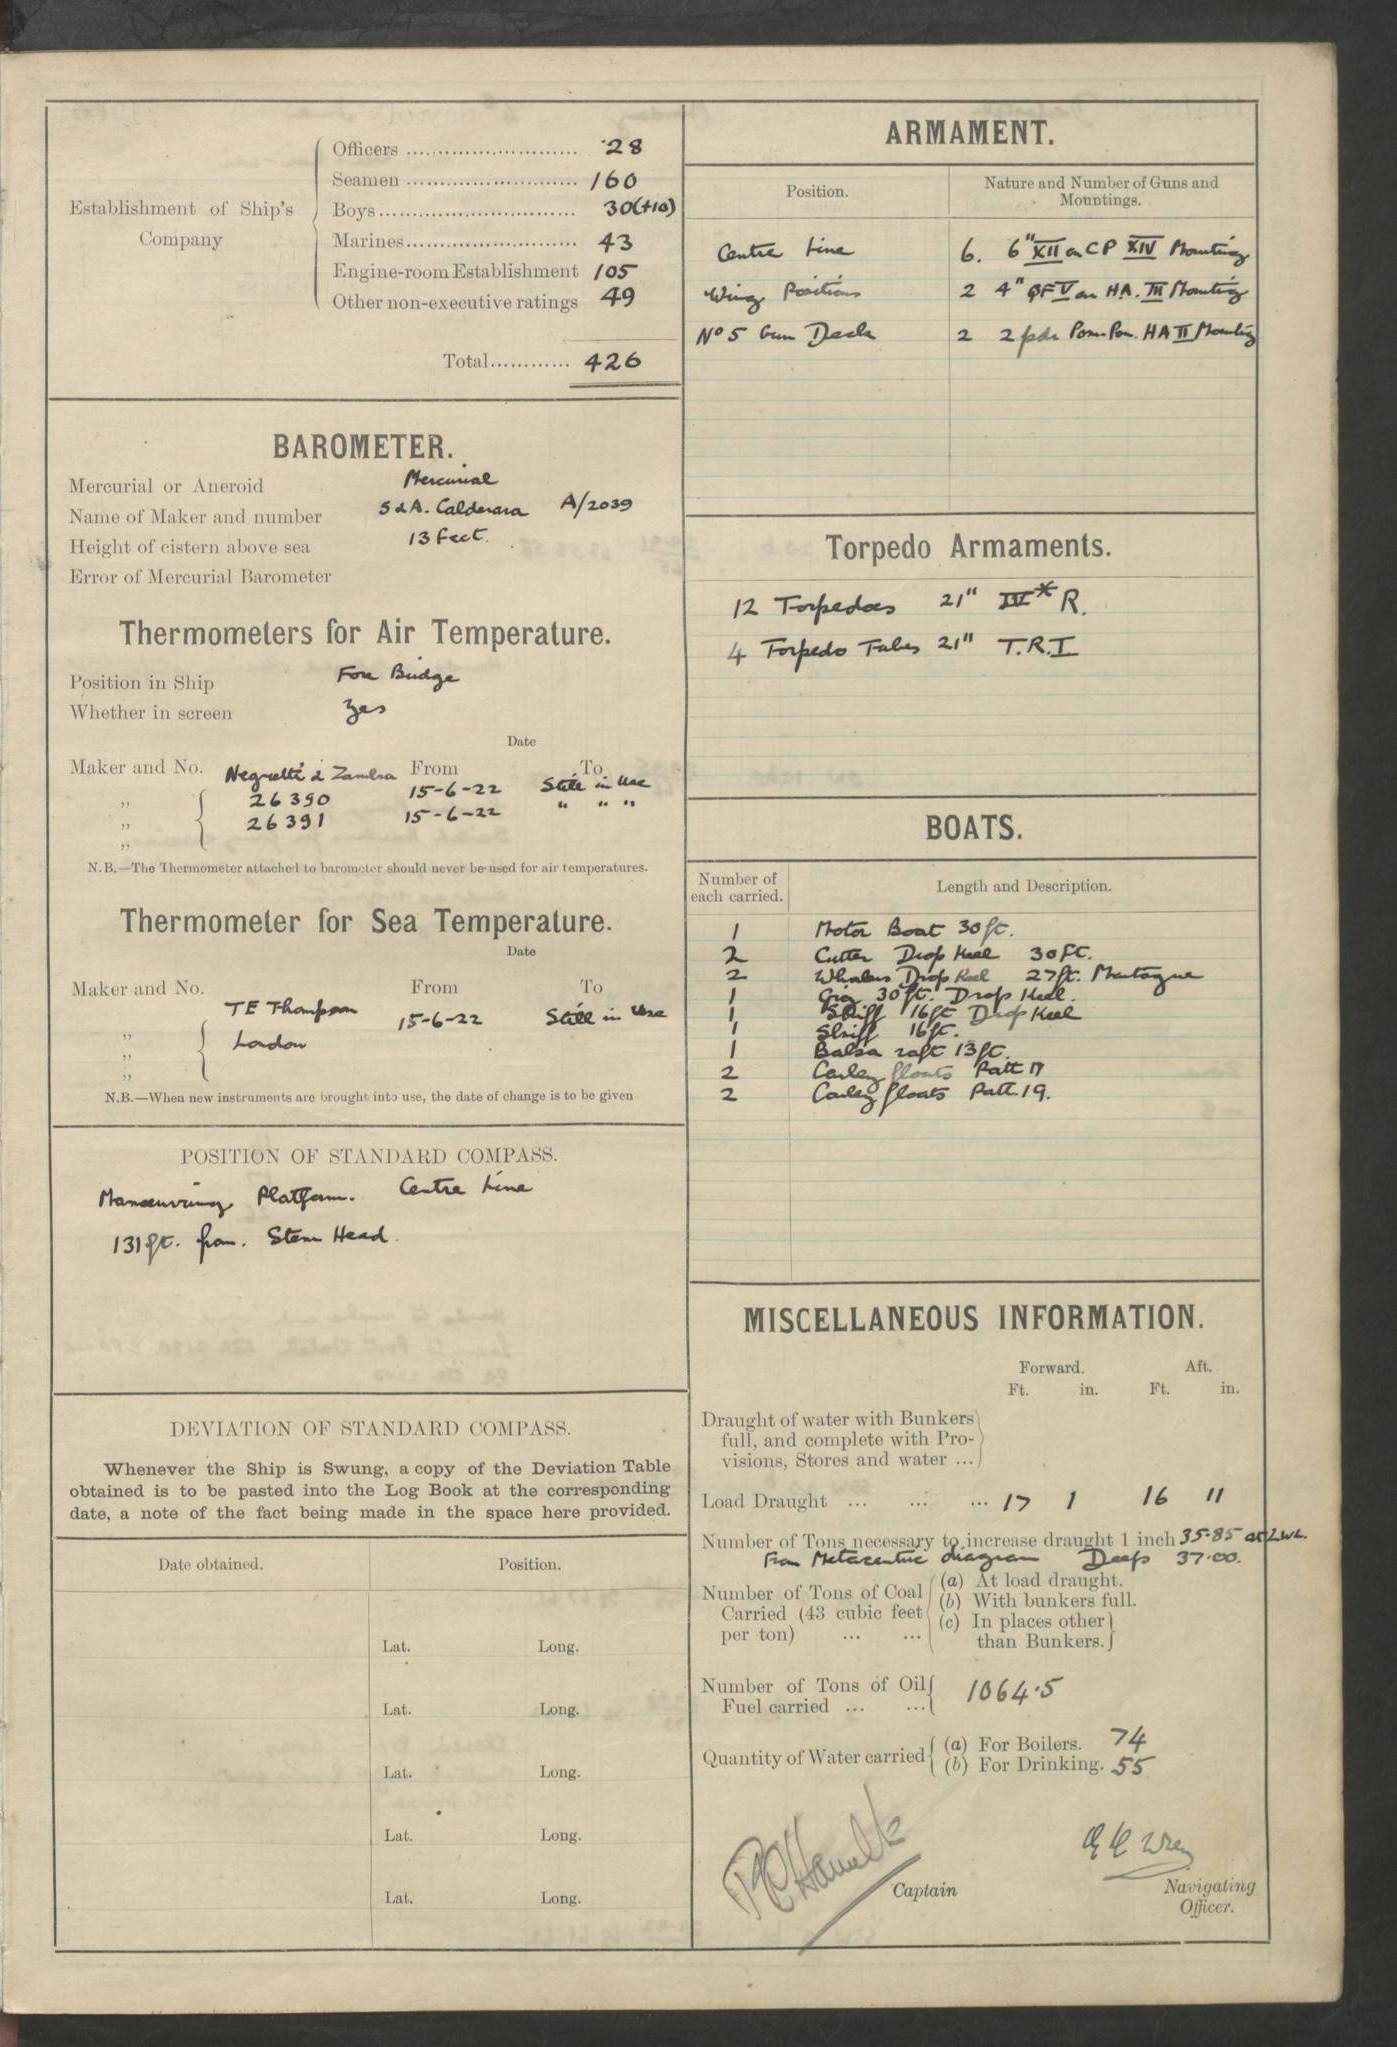 Establishment of Ship's Company
Officers ........................... 28
Seamen ........................... 160
Boys.............................. 30(+10)
Marines........................... 43
Engine-room Establishment 105
Other non-executive ratings 49
Total............ 426
BAROMETER.
Mercurial or Aneroid Mercurial
Name of Maker and number S & A. Calderara A/2039
Height of cistern above sea 13 feet.
Error of Mercurial Barometer
Thermometers for Air Temperature.
Position in Ship Fore Bridge
Whether in screen Yes
Date
Maker and No. Negretti & Zambra From To
„ 26390 15-6-22 Still in Use
„ 26391 15-6-22 " " "
„
N.B.—The Thermometer attached to barometer should never be used for air temperatures.
Thermometer for Sea Temperature.
Date
Maker and No. From To
T E Thompson 15-6-22 Still in Use
„ London
„
„
N.B.—When new instruments are brought into use, the date of change is to be given
POSITION OF STANDARD COMPASS.
Manœuvring Platform. Centre Line
131 ft. from. Stem Head.
DEVIATION OF STANDARD COMPASS.
Whenever the Ship is Swung, a copy of the Deviation Table
obtained is to be pasted into the Log Book at the corresponding
date, a note of the fact being made in the space here provided.
Date obtained. Position.
Lat. Long.
Lat. Long.
Lat. Long.
Lat. Long.
Lat. Long.
ARMAMENT.
Position. Nature and Number of Guns and Mountings.
Centre Line 6. 6" XII on CP XIV Mounting
Wing Positions 2 4" QF V on HA. III Mounting
No 5 Gun Deck 2 2 pdr Pom Pom. HA II Mounting
Torpedo Armaments.
12 Torpedoes 21" IV* R.
4 Torpedo Tubes 21" T.R.I
BOATS.
Number of each carried. Length and Description.
1 Motor Boat 30 ft.
2 Cutter Drop Keel 30 ft.
2 Whalers Drop Keel 27 ft. Montague
1 Gig 30 ft. Drop Keel.
1 Skiff 16 ft Drop Keel
1 Skiff 16 ft.
1 Balsa raft 13 ft.
2 Carley floats Patt 17
2 Carley floats Patt. 19.
MISCELLANEOUS INFORMATION.
Forward. Aft.
Ft. in. Ft. in.
Draught of water with Bunkers
full, and complete with Pro-
visions, Stores and water ...
Load Draught ... ... ... 17 1 16 11
Number of Tons necessary to increase draught 1 inch 35.85 at LWL.
From Metacentric diagram Deep 37.00.
Number of Tons of Coal (a) At load draught.
Carried (43 cubic feet (b) With bunkers full.
per ton) ... ... (c) In places other
than Bunkers.
Number of Tons of Oil
Fuel carried ... ... 1064.5
Quantity of Water carried (a) For Boilers. 74
(b) For Drinking. 55
Captain
Navigating
Officer.